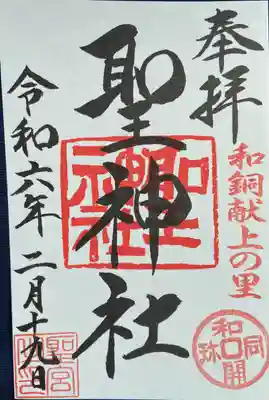 奉拝
和銅献上の里
和同開珎
聖神社
聖神社
令和六年二月十九日